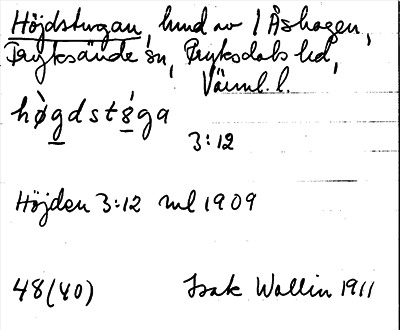 Höjdstugan, hmd av 1 Åshagen,
Fryksände sn, Fryksdals hd,
Värml. l.
hògdsts̀ga
3:12
Höjden 3:12 ml 1909
48(40) Isak Wallin 1911